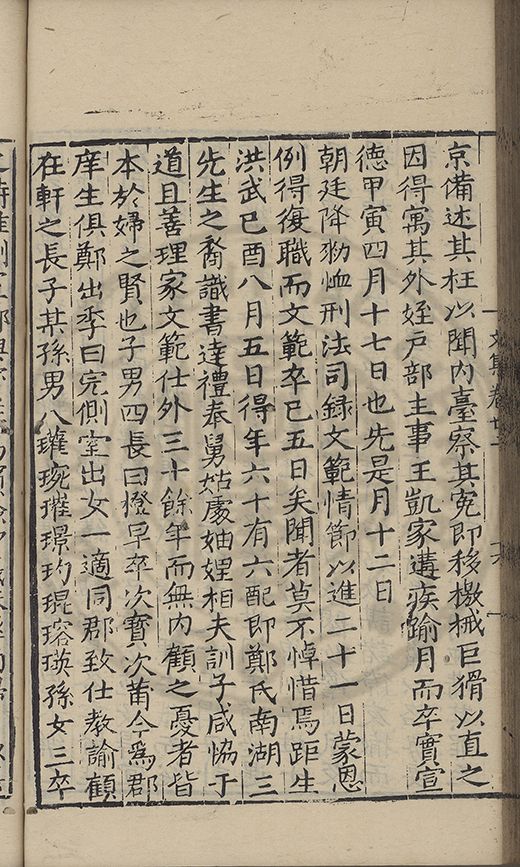 京備述其枉以聞内臺察其寃即移檄械巨猾以直之
因得寓其外姪戶部主事王凱家遘疾踰月而卒實宣
德甲寅四月十七日也先是月十二日
朝廷降勑恤刑法司録文範情節以進二十一日蒙恩
例得復職而文範卒已五日矣聞者莫不悼惜焉距生
洪武己酉八月五日得年六十有六配即鄭氏南湖三
先生之裔識書達禮奉舅姑處妯娌相夫訓子咸恊于
道且善理家文範仕外三十餘年而無内顧之憂者皆
本於婦之賢也子男四長曰橙早卒次寳次莆今爲郡
庠生俱鄭出季曰完側室出女一適同郡致仕教諭顧
在軒之長子某孫男八瓘琬璀璟玓琨瑢瑛孫女三卒
文集卷廿二